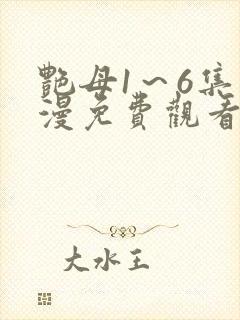 艷母1～6集
漫免費觀看
大水王